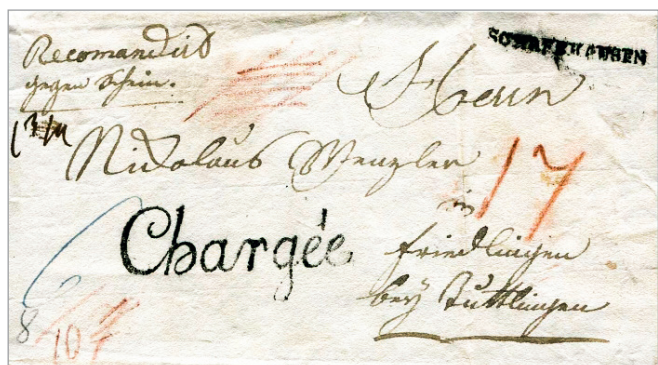 Recomandirt
gegen Schein.
SCHAFFHAUSEN
Herrn
Nickolaus Wenzler
17
in
Chargée
Fridlingen
bey Tuttlingen
8
10